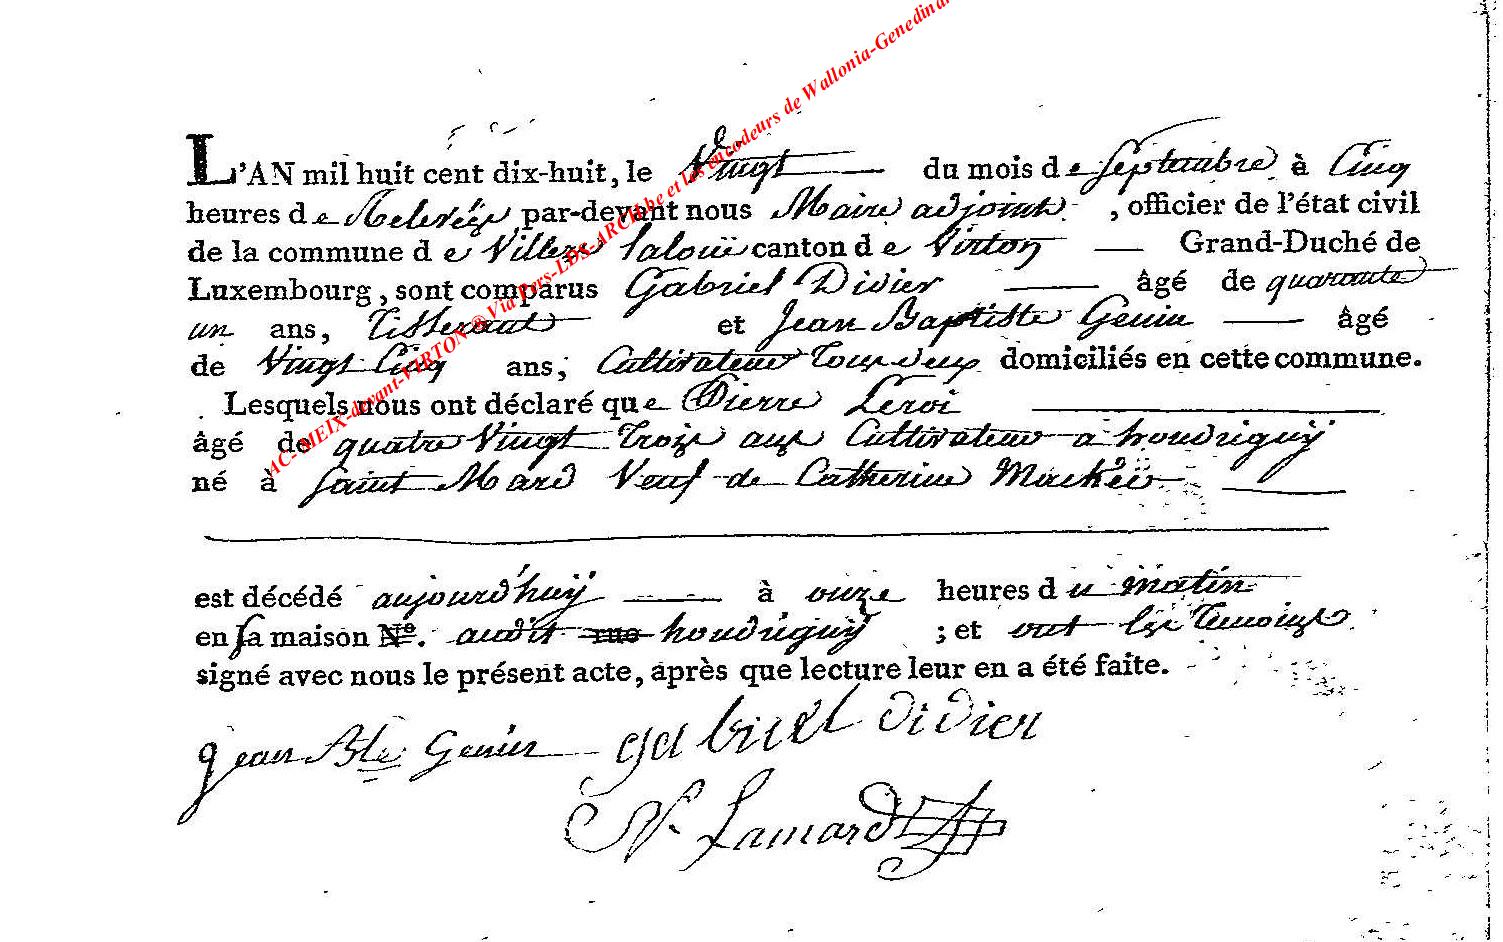 L'AN mil huit cent dix-huit, le Vingt du mois de Septembre à Cinq
heures de Relevée, par-devant nous Maire adjoint, officier de l'état civil
de la commune de Villers laloüe canton de Virton Grand-Duché de
Luxembourg, sont comparus Gabriel Didier âgé de quarante
un ans, Tisserant et Jean Baptiste Genin âgé
de Vingt Cinq ans, Cultivateur Tous deux domiciliés en cette commune.
Lesquels nous ont déclaré que Pierre Leroi
âgé de quatre Vingt Trois ans Cultivateur a houdriguy
né à Saint Mard Veuf de Catherine
est décédé aujourd'huy à onze heures du matin
en sa maison No. audit rue houdriguy ; et ont les Temoins
signé avec nous le présent acte, après que lecture leur en a été faite.
Jean Bte Genin gabriel didier
N. Lamard
AC-MEIX-devant-VIRTON ® Via Pers-LDS-ARCH.be et les encodeurs de Wallonia-Genedinar